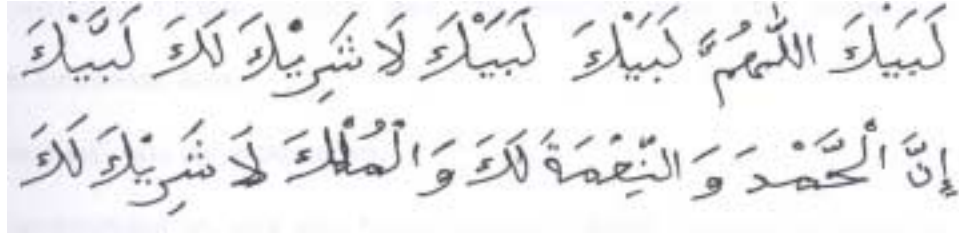 لَبَيْكَ اللّٰهُمَّ لَبَيْكَ لَبَيْكَ لَا شَرِيْكَ لَكَ لَبَّيْكَ
إِنَّ الْحَّمْدَ وَ النِّعْمَةَ لَكَ وَ الْمُلْكَ لَا شَرِيْكَ لَكَ